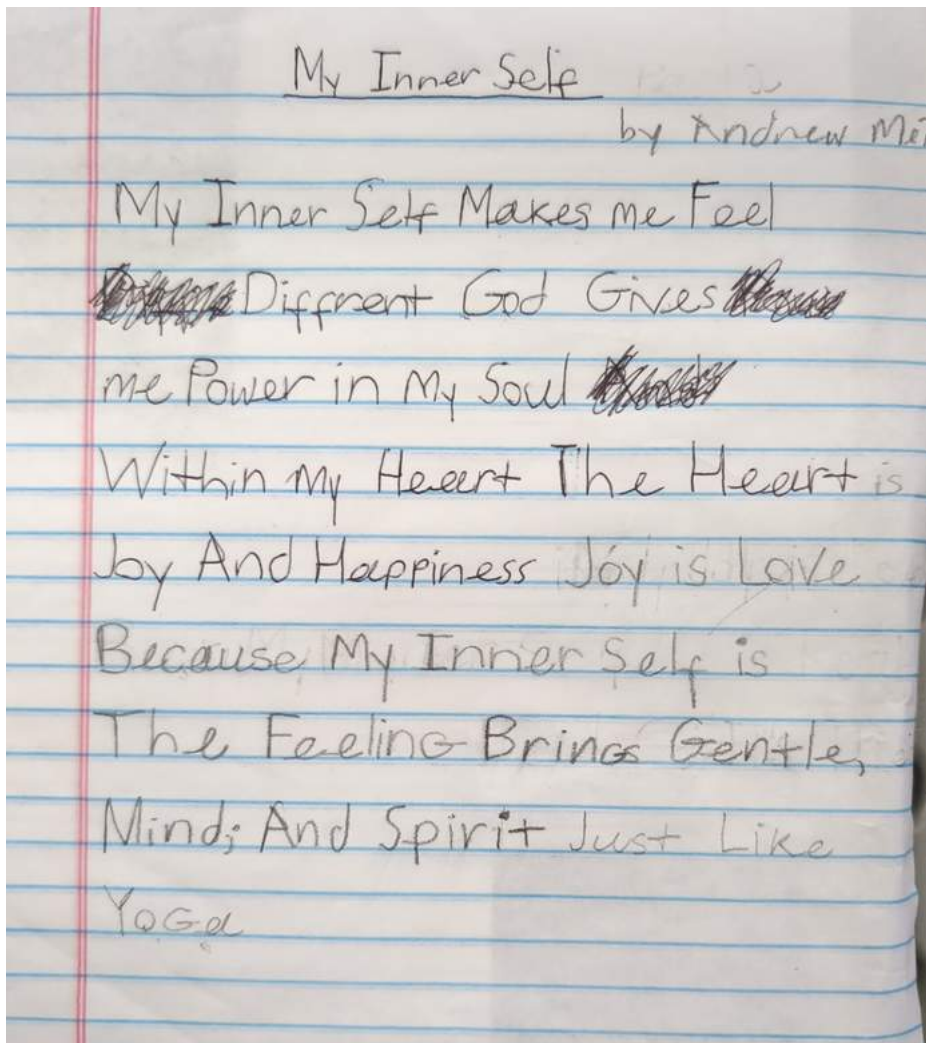 My Inner Self
by Andrew
My Inner Self Makes me Feel
Diffrent God Gives
me Power in My Soul
Within My Heeart The Heart is
Joy And Happiness Joy is Love
Because My Inner Self is
The Feeling Brings Gentle,
Mind; And Spirit Just Like
Yoga